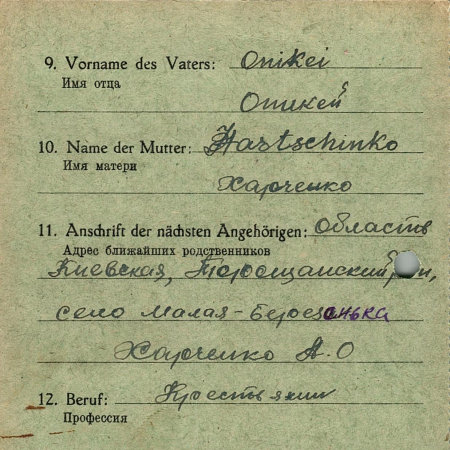 9. Vorname des Vaters: Onikei
Имя отца
Оникей
10. Name der Mutter: Hartschinko
Имя матери
Харченко
11. Anschrift der nächsten Angehörigen: Область
Адрес ближайших родственников
Киевская,
село Малая-Березенька
Харченко А.О
12. Beruf: Крестьянин
Профессия